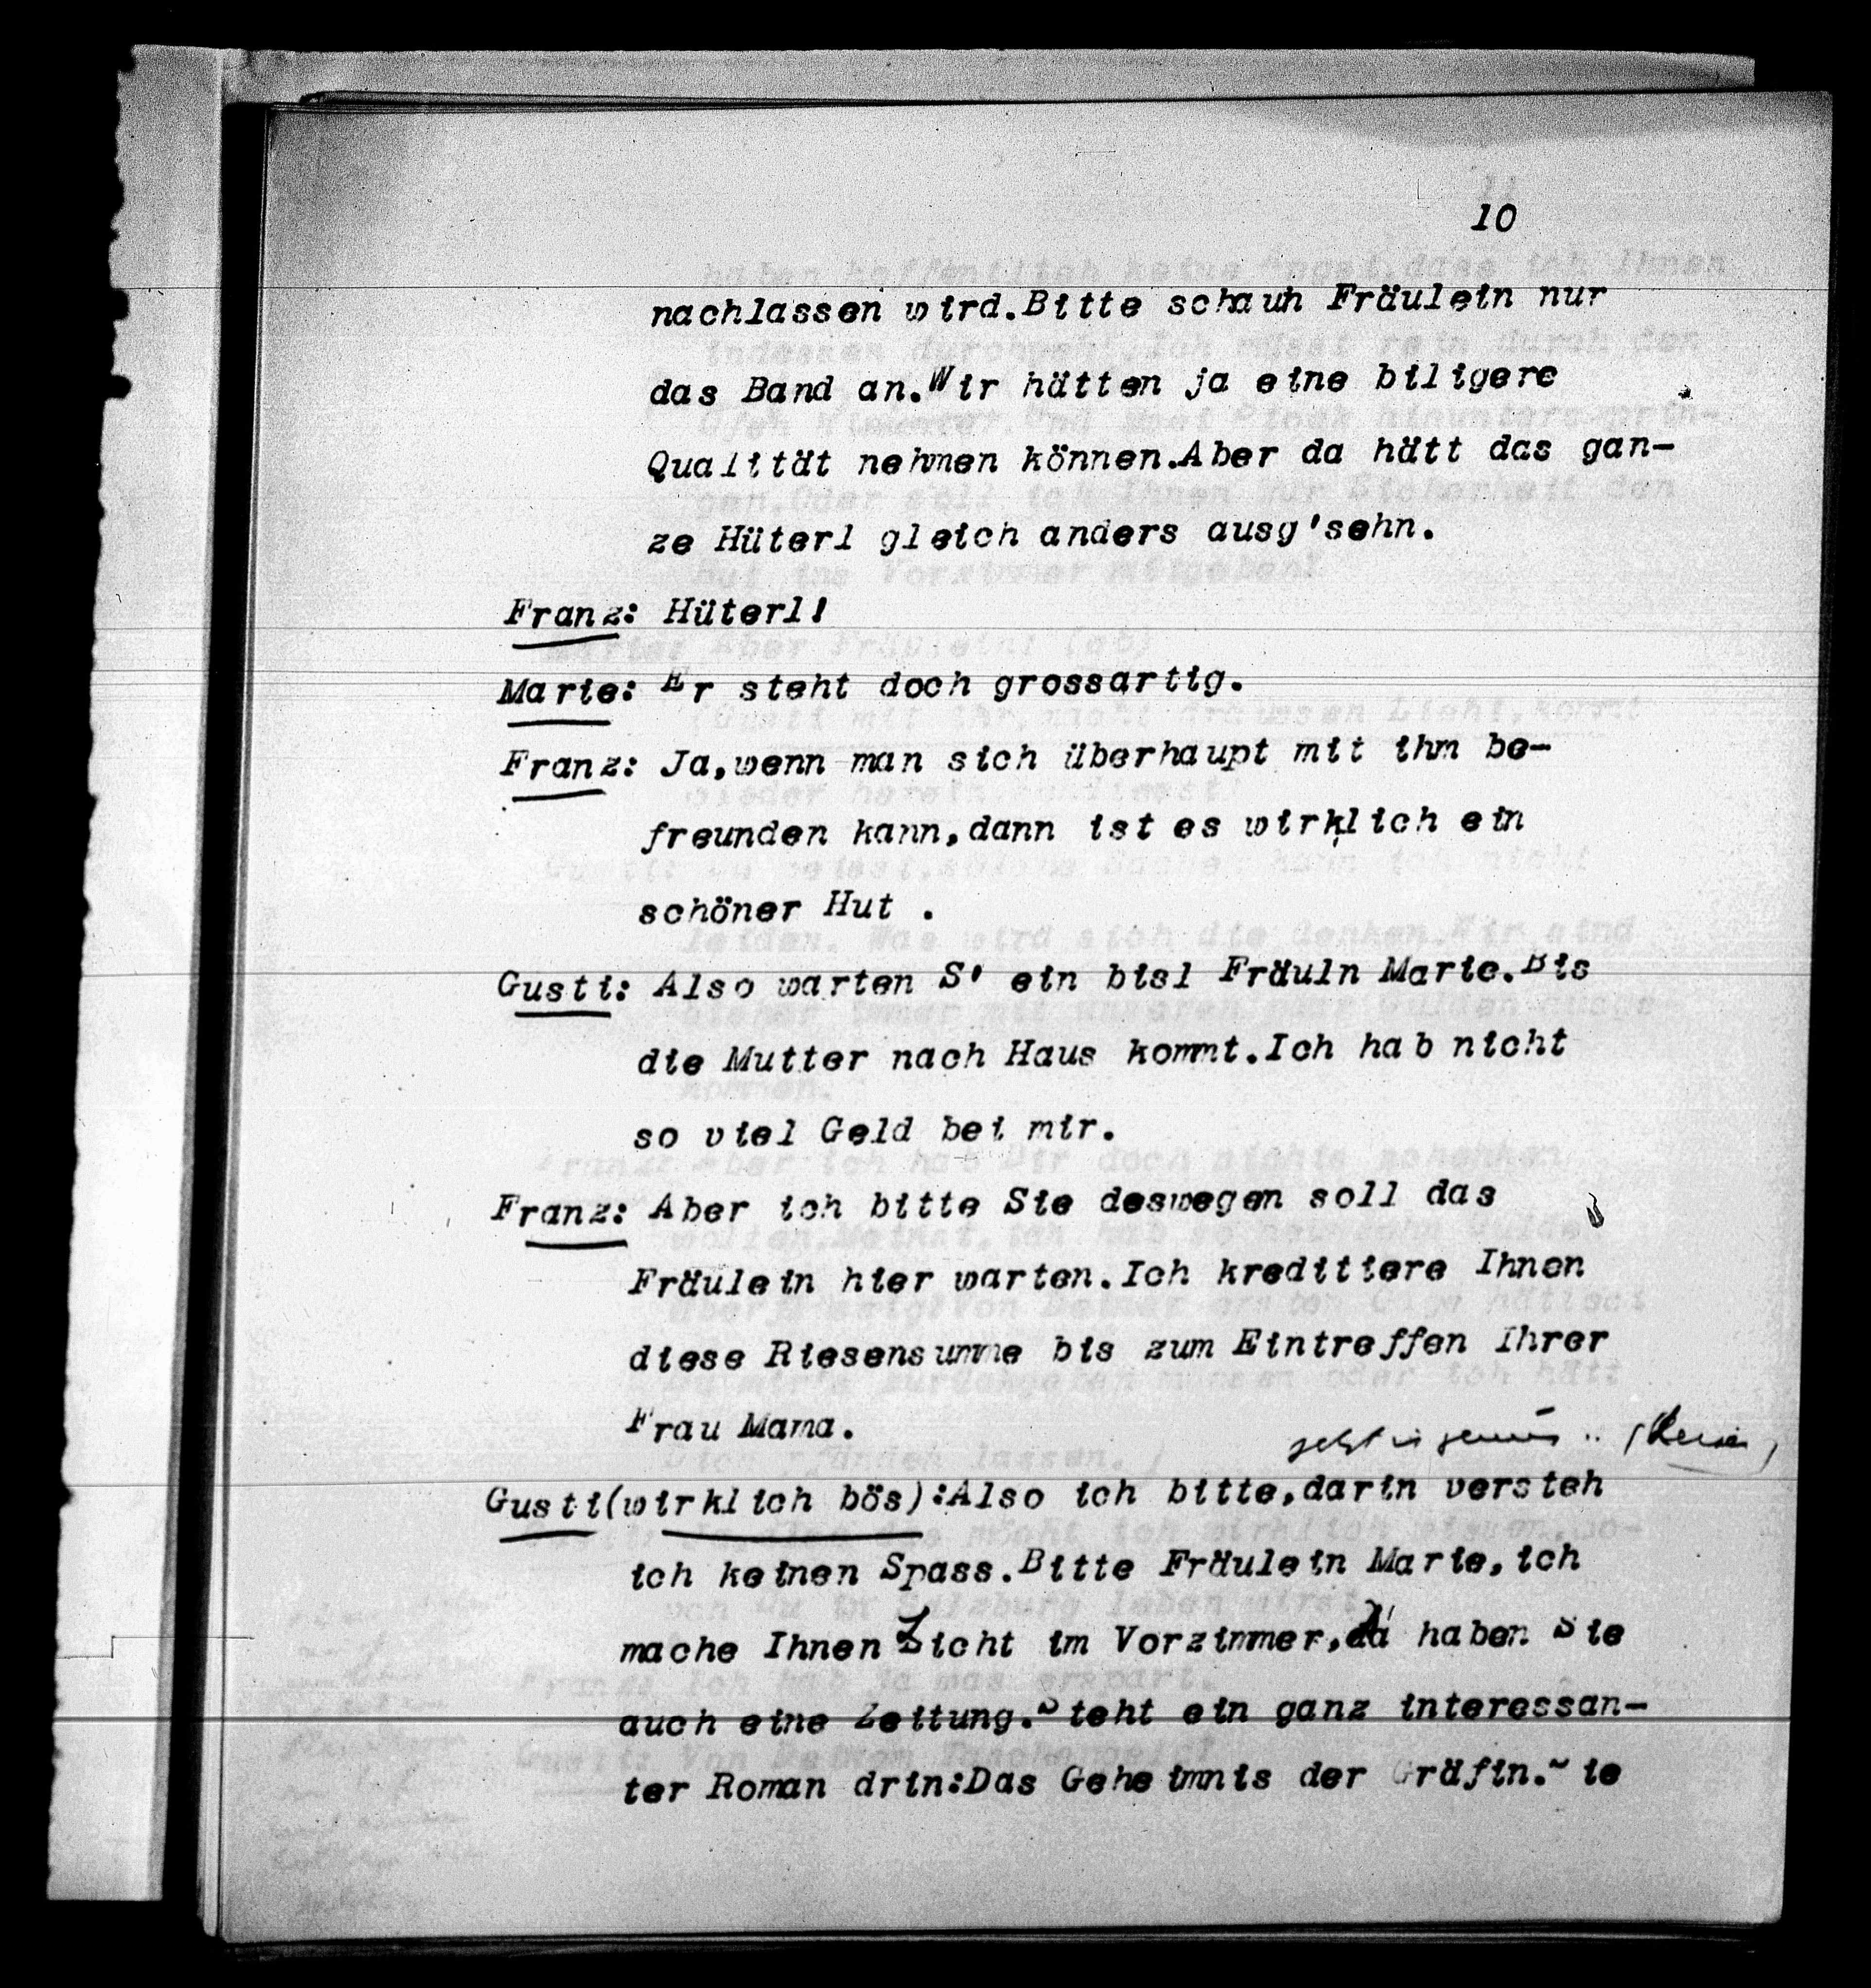 10
nachlassen wird.Bitte schauh Fräulein nur
das Band an.Wir hätten ja eine biligere
Qualität nehmen können.Aber da hätt das gan-
ze Hüterl gleich anders ausg'sehn.
Franz: Hüterl!
Marie: Er steht doch grossartig.
Franz: Ja,wenn man sich überhaupt mit ihm be-
freunden kann,dann ist es wirklich ein
schöner Hut .
Gusti: Also warten S' ein bisl Fräuln Marie.Bis
die Mutter nach Haus kommt.Ich hab nicht
so viel Geld bei mir.
Franz: Aber ich bitte Sie deswegen soll das
Fräulein hier warten.Ich kredittere Ihnen
diese Riesensumme bis zum Eintreffen Ihrer
Frau Mama.
Gusti(wirklich bös):Also ich bitte,darin versteh
ich keinen Spass.Bitte Fräulein Marie,ich
mache Ihnen Licht im Vorzimmer,da haben Sie
auch eine Zeitung.Steht ein ganz interessan-
ter Roman drin:Das Geheimnis der Gräfin.Sie